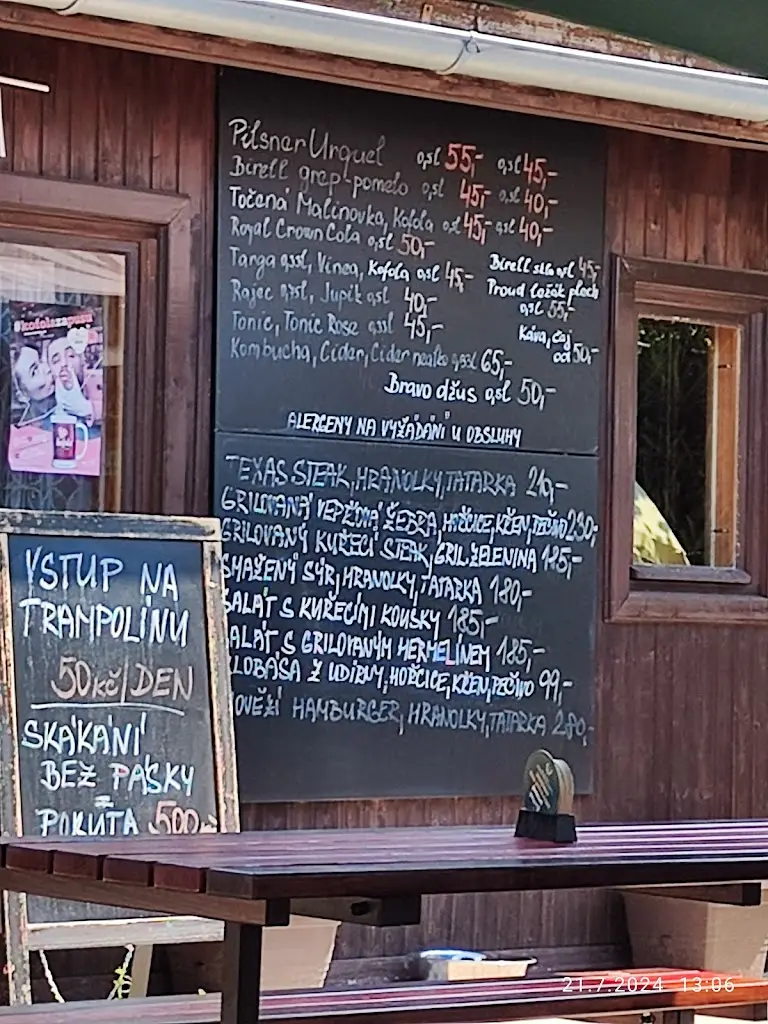 Pilsner Urquel 0,5l 55,- 0,3l 45,-
Birell grep-pomelo 0,5l 45,- 0,3l 40,-
Točená Malinovka, Kofola 0,5l 45,- 0,3l 40,-
Royal Crown Cola 0,5l 50,-
Targa 0,33l, Vinea, Kofola 0,5l 45,-
Rajec 0,75l, Jupík 0,5l 40,-
Tonic, Tonic Rose 0,33l 45,-
Kombucha, Cider, Cider nealko 0,33l 65,-
Birell sklo 0,5l 45,-
Proud ležák plech
0,5l 55,-
Káva, čaj
od 50,-
Bravo džus 0,5l 50,-
ALERGENY NA VYŽÁDÁNÍ U OBSLUHY
TEXAS STEAK, HRANOLKY, TATARKA 210,-
GRILOVANÁ VEPŘOVÁ ŽEBRA, HOŘČICE, KŘEN, PEČIVO 230,-
GRILOVANÝ KUŘECÍ STEAK, GRIL. ZELENINA 185,-
SMAŽENÝ SÝR, HRANOLKY, TATARKA 180,-
SALÁT S KUŘECÍMI KOUSKY 185,-
SALÁT S GRILOVANÝM HERMELÍNEM 185,-
KLOBÁSA Z UDÍRNY, HOŘČICE, KŘEN, PEČIVO 99,-
HOVĚZÍ HAMBURGER, HRANOLKY, TATARKA 280,-
VSTUP NA
TRAMPOLÍNU
50 Kč/DEN
SKÁKÁNÍ
BEZ PÁSKY
=
POKUTA 500
#kofolazapusu
21.7.2024 13:06